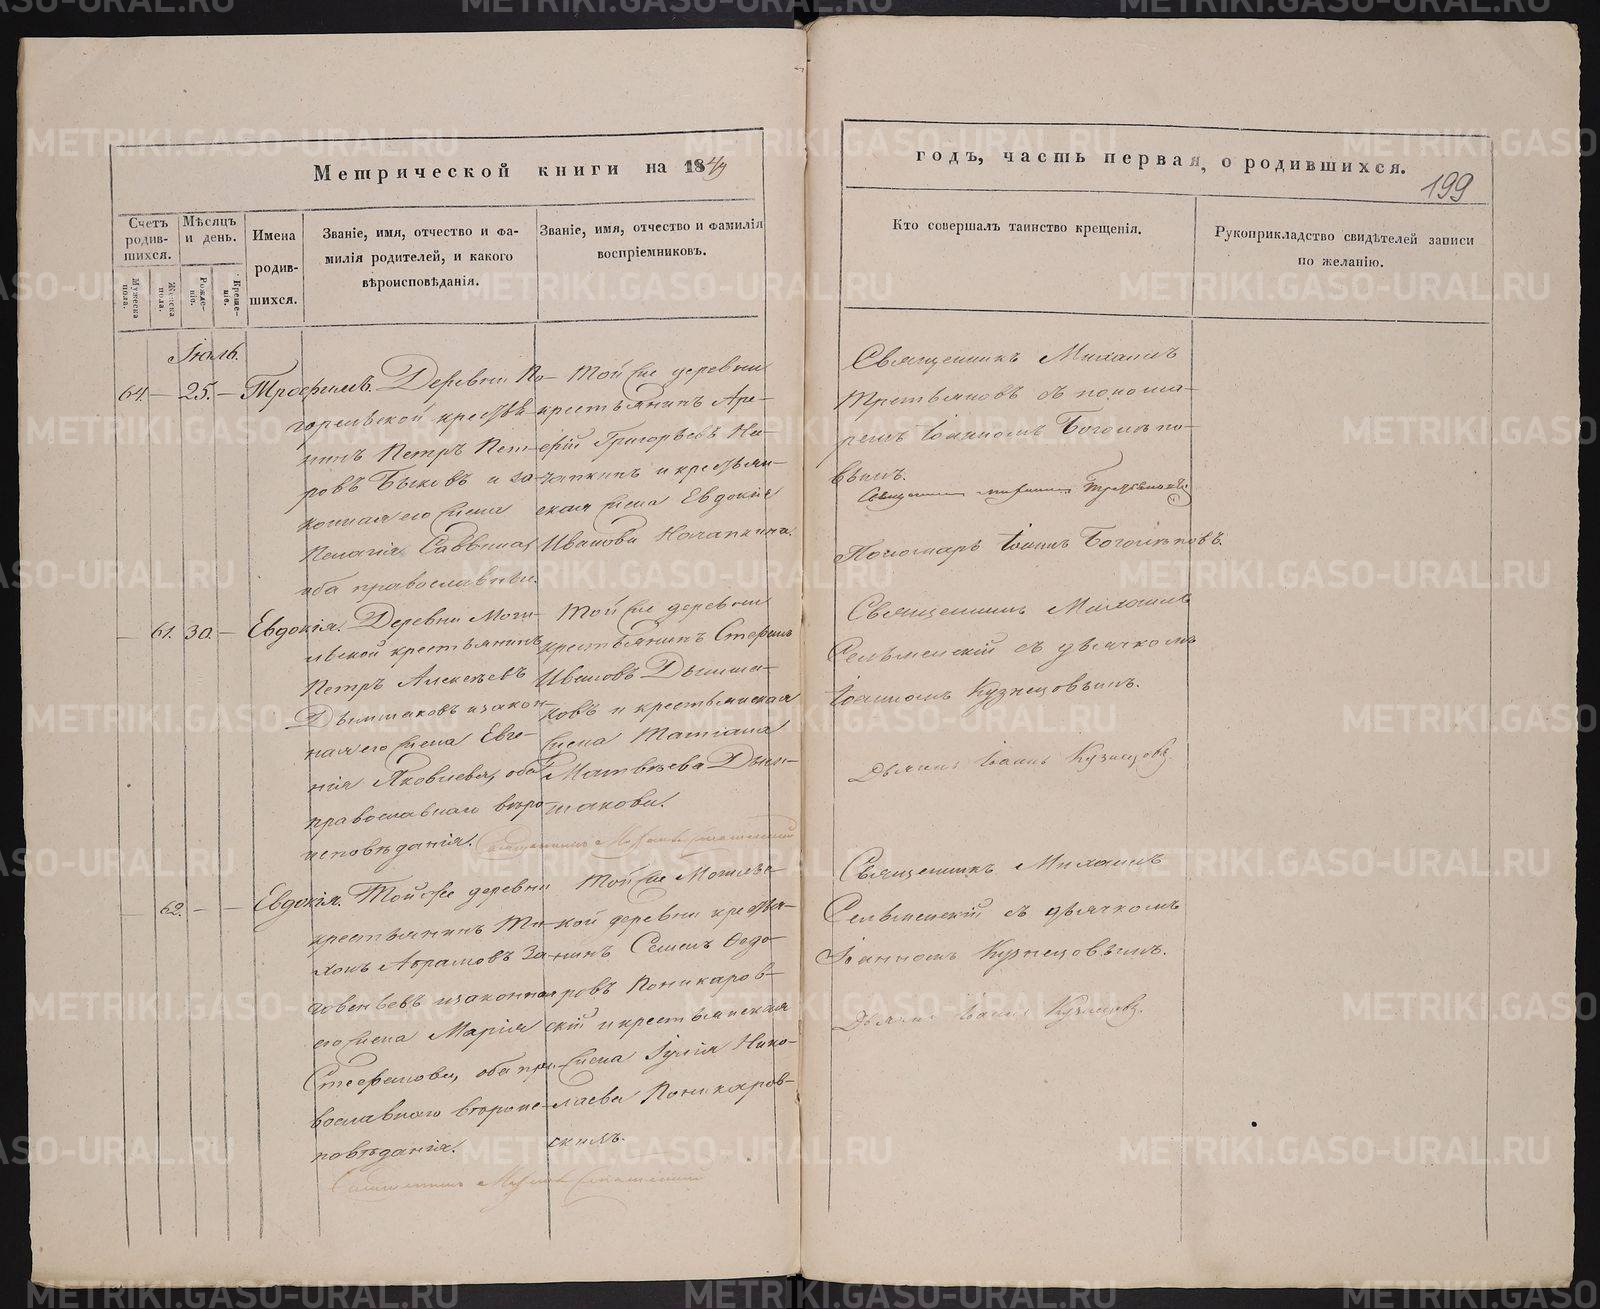 Метрической книги на 1849
годъ, часть первая, о родившихся.
199
Счетъ родившихся.
Мужеска пола.
Женска пола.
Мѣсяцъ и день.
Рожденіе.
Крещеніе.
Имена родившихся.
Званіе, имя, отчество и фамилія родителей, и какого вѣроисповѣданія.
Званіе, имя, отчество и фамилія воспріемниковъ.
Кто совершалъ таинство крещенія.
Рукоприкладство свидѣтелей записи по желанію.
Іюль.
64. — 25. — Трофимъ. Деревни По-
горельской крестья-
нинъ Петръ Пет-
ровъ Быковъ и за-
конная его жена
Пелагія Саввина,
оба православныи.
Той же деревни
крестьянинъ Аре-
фій Григорьевъ
и крестьян-
ская жена Евдокія
Иванова
Священникъ Михаилъ
Третьяковъ съ понома-
ремъ Іоанномъ Боголѣпо-
вымъ.
Священникъ Михаилъ Третьяковъ
Пономарь Іоаннъ Боголѣповъ.
— 61. 30. — Евдокія. Деревни Моги-
льской крестьянинъ
Петръ Алексѣевъ
Дымшаковъ и закон-
ная его жена Евге-
нія Яковлева, оба
православнаго вѣро-
исповѣданія.
Той же деревни
крестьянинъ Стефанъ
Ивановъ Дымша-
ковъ и крестьянская
жена Татіана
Матвѣева Дым-
шакова.
Священникъ Михаилъ
Сельменскій съ дьячкомъ
Іоанномъ Кузнецовымъ.
Дьячекъ Іоаннъ Кузнецовъ.
— 62. — — Евдокія. Той же деревни
крестьянинъ Ти-
хонъ Абрамовъ За-
и законная
его жена Марія
Стефанова, оба пра-
вославнаго вѣроис-
повѣданія.
Той же Могиль-
кой деревни крестья-
нинъ Семенъ Ѳедо-
ровъ Поникаров-
скій и крестьянская
жена Іулія Нико-
лаева Поникаров-
скихъ.
Священникъ Михаилъ
Сельменскій съ дьячкомъ
Іоанномъ Кузнецовымъ.
Дьячекъ Іоаннъ Кузнецовъ.
METRIKI.GASO-URAL.RU